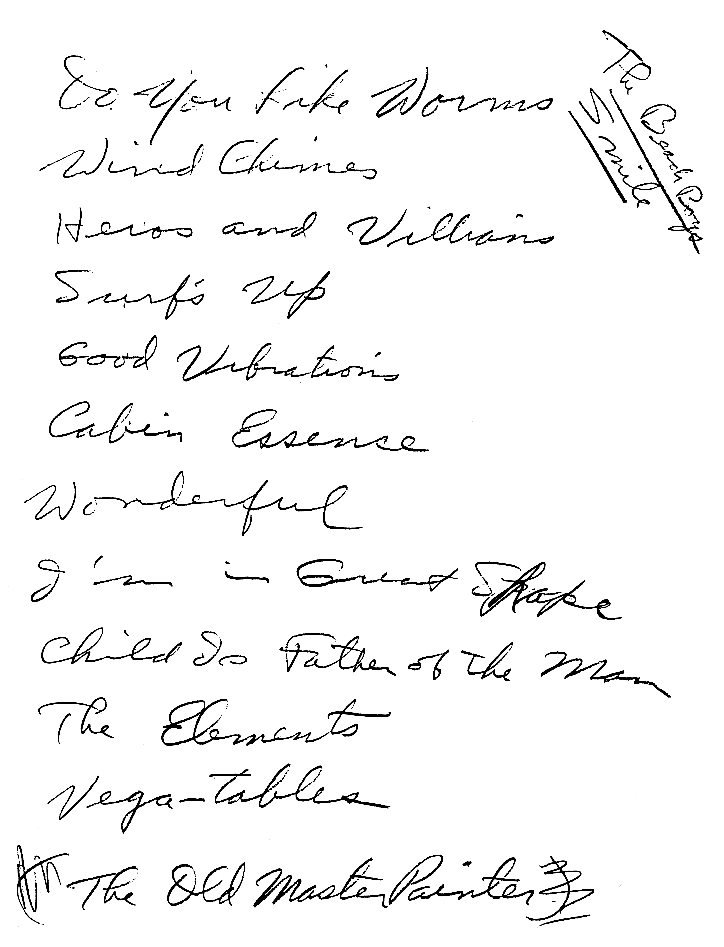 The Beach Boys
Smile
Do You Like Worms
Wind Chimes
Heros and Villians
Surf's Up
Good Vibrations
Cabin Essence
Wonderful
I'm in Great Shape
Child Is Father of the Man
The Elements
Vega-tables
The Old Master Painter